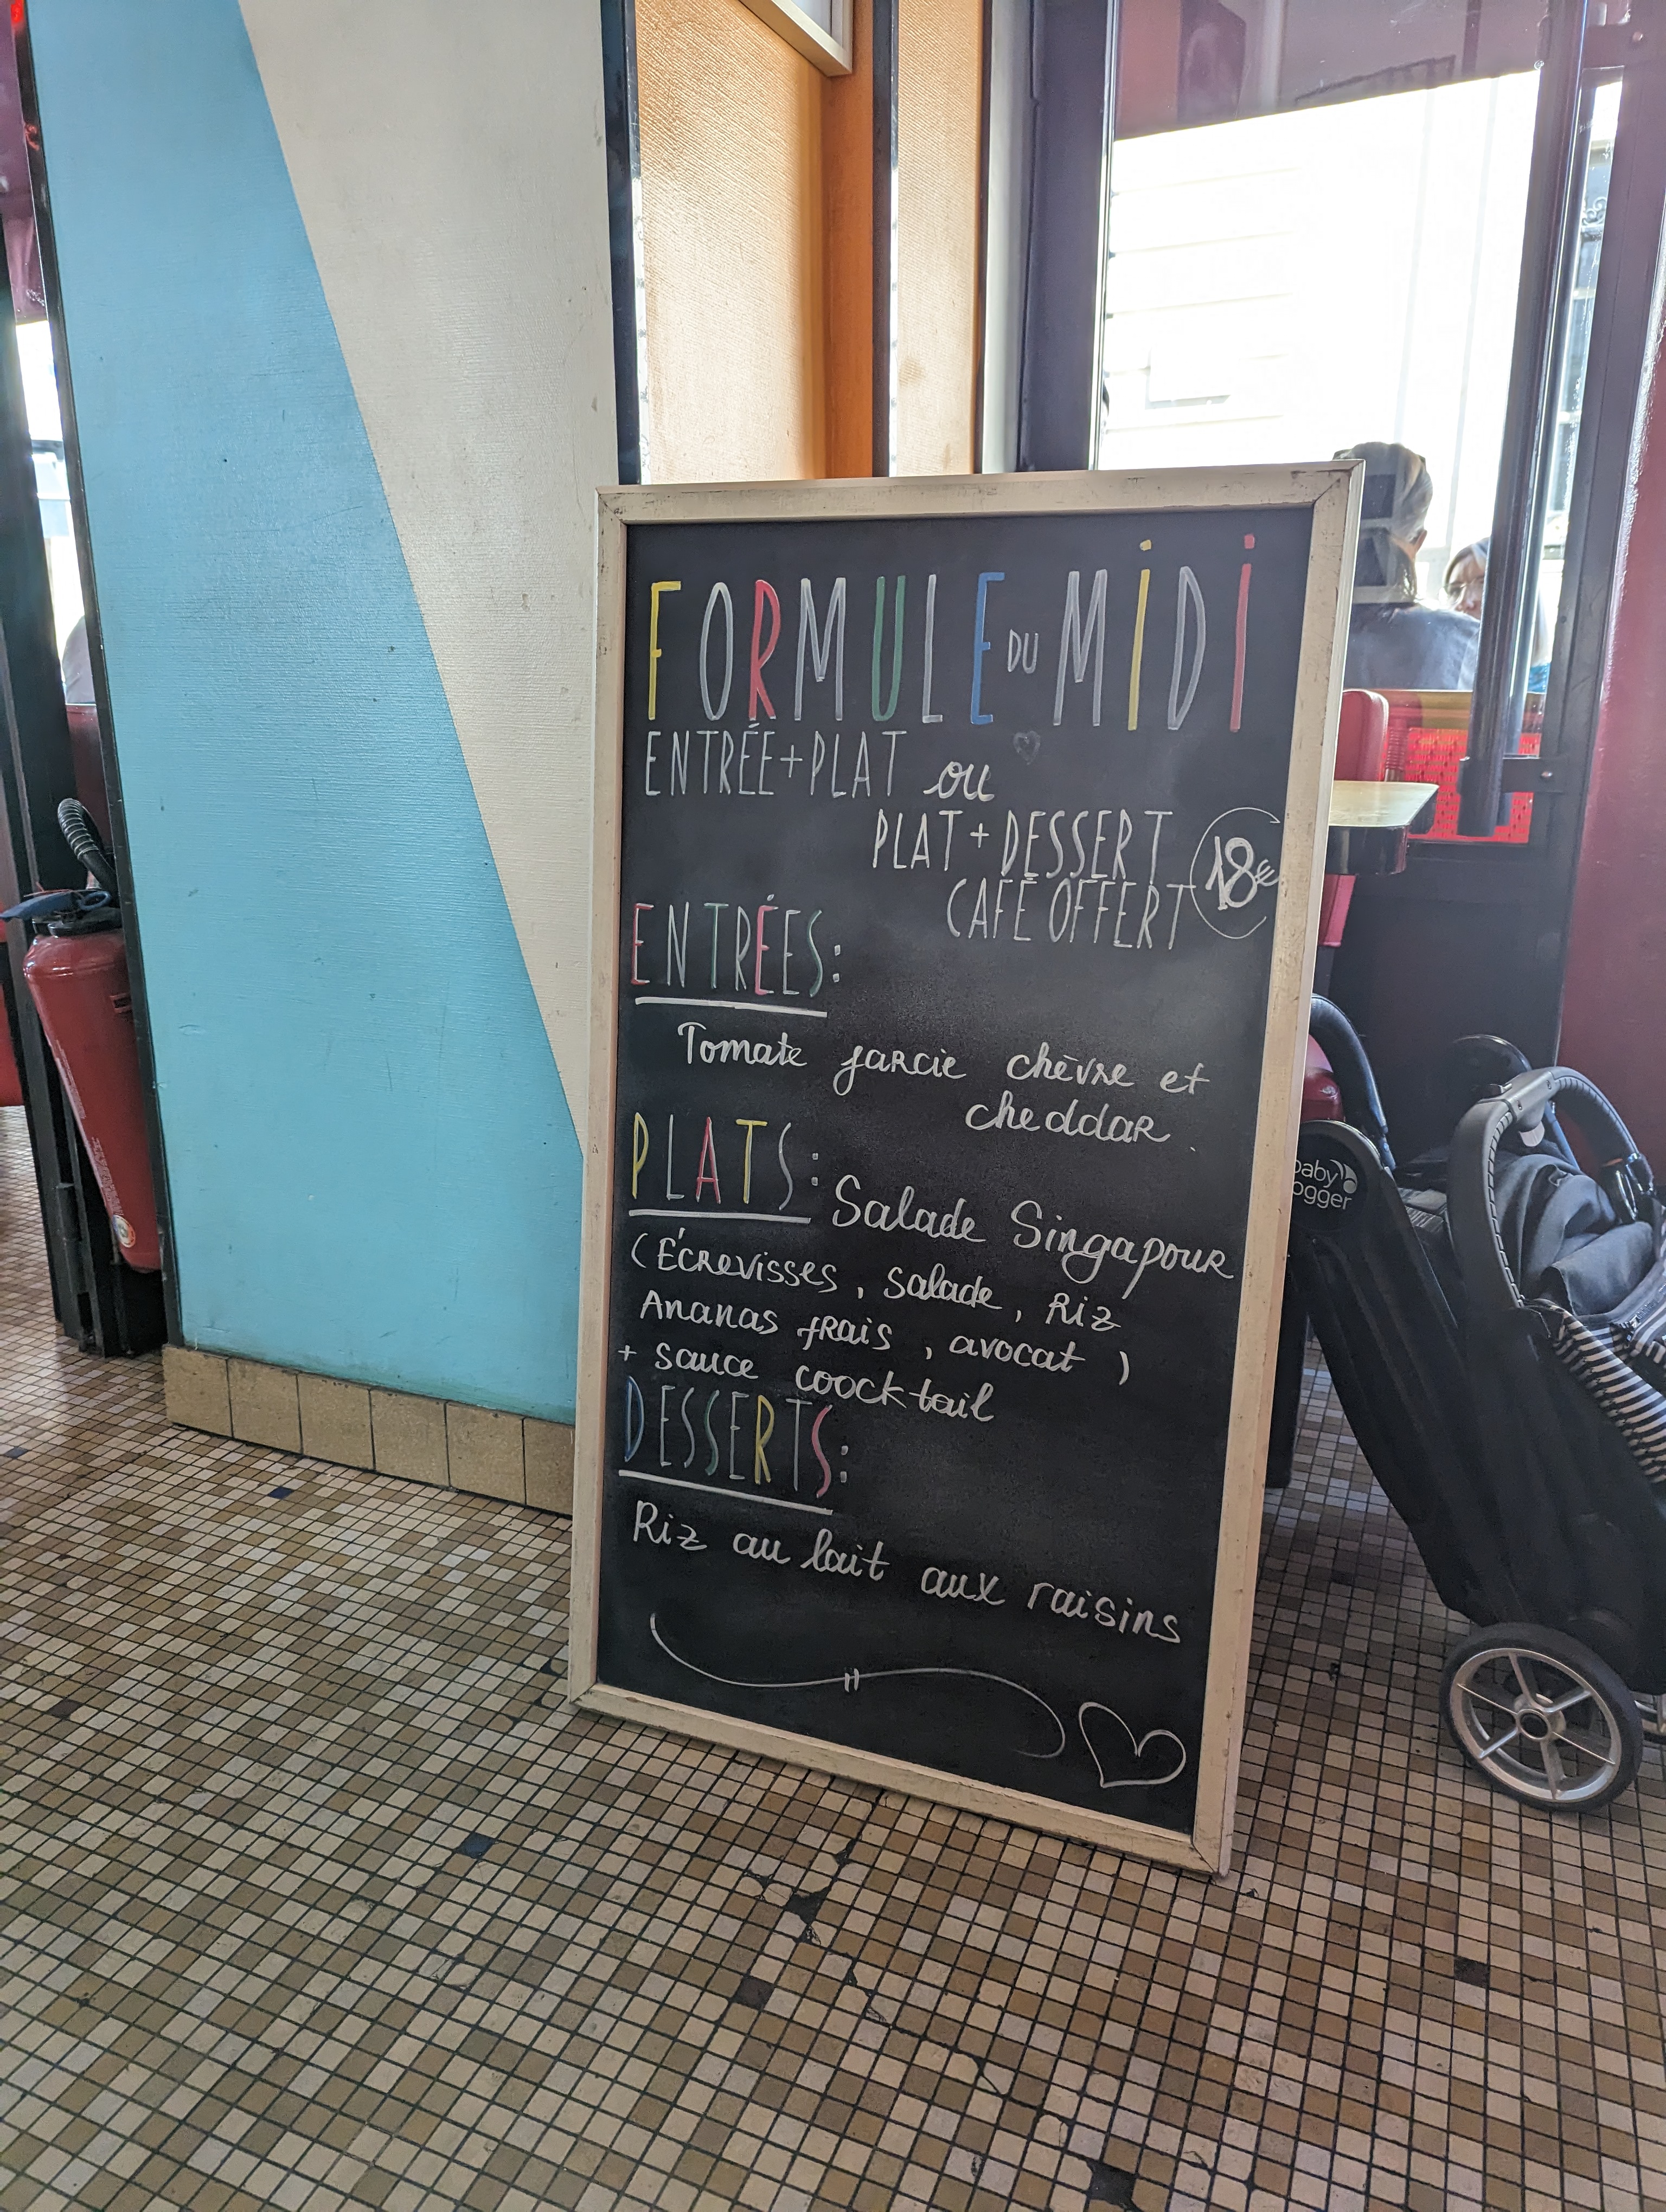 FORMULE DU MiDi
ENTRÉE+PLAT ou
PLAT + DESSERT
18€
CAFÉ OFFERT
ENTRÉES:
Tomate farcie chèvre et
cheddar.
PLATS: Salade Singapour
(Écrevisses, salade, Riz
Ananas frais, avocat)
+ sauce coocktail
DESSERTS:
Riz au lait aux raisins
baby
ogger